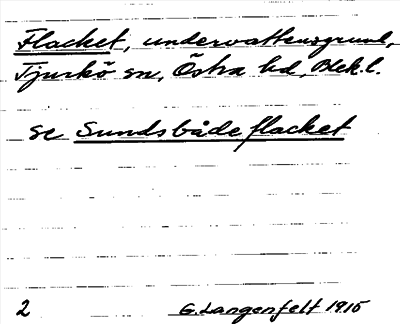 Flacket, undervattensgrund,
Tjurkö sn, Östra hd, Blek.l.
se Sundsbådeflacket
2 G. Langenfelt 1915